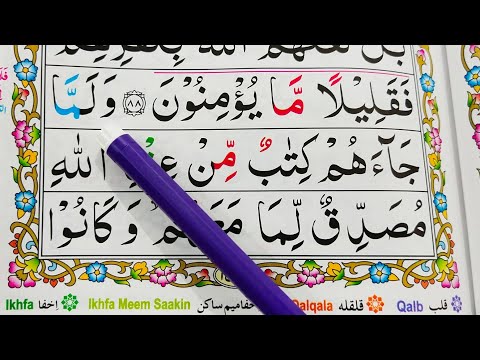 بَلْ لَّعَنَهُمُ اللّٰهُ بِكُفْرِهِمْ
فَقَلِيْلًا مَّا يُؤْمِنُوْنَ ﴿٨٨﴾ وَلَمَّا
جَآءَهُمْ كِتٰبٌ مِّنْ عِنْدِ اللّٰهِ
مُصَدِّقٌ لِّمَا مَعَهُمْ وَكَانُوْا
Ikhfa اخفا Ikhfa Meem Saakin اخفا ميم ساكن Qalqala قلقله Qalb قلب